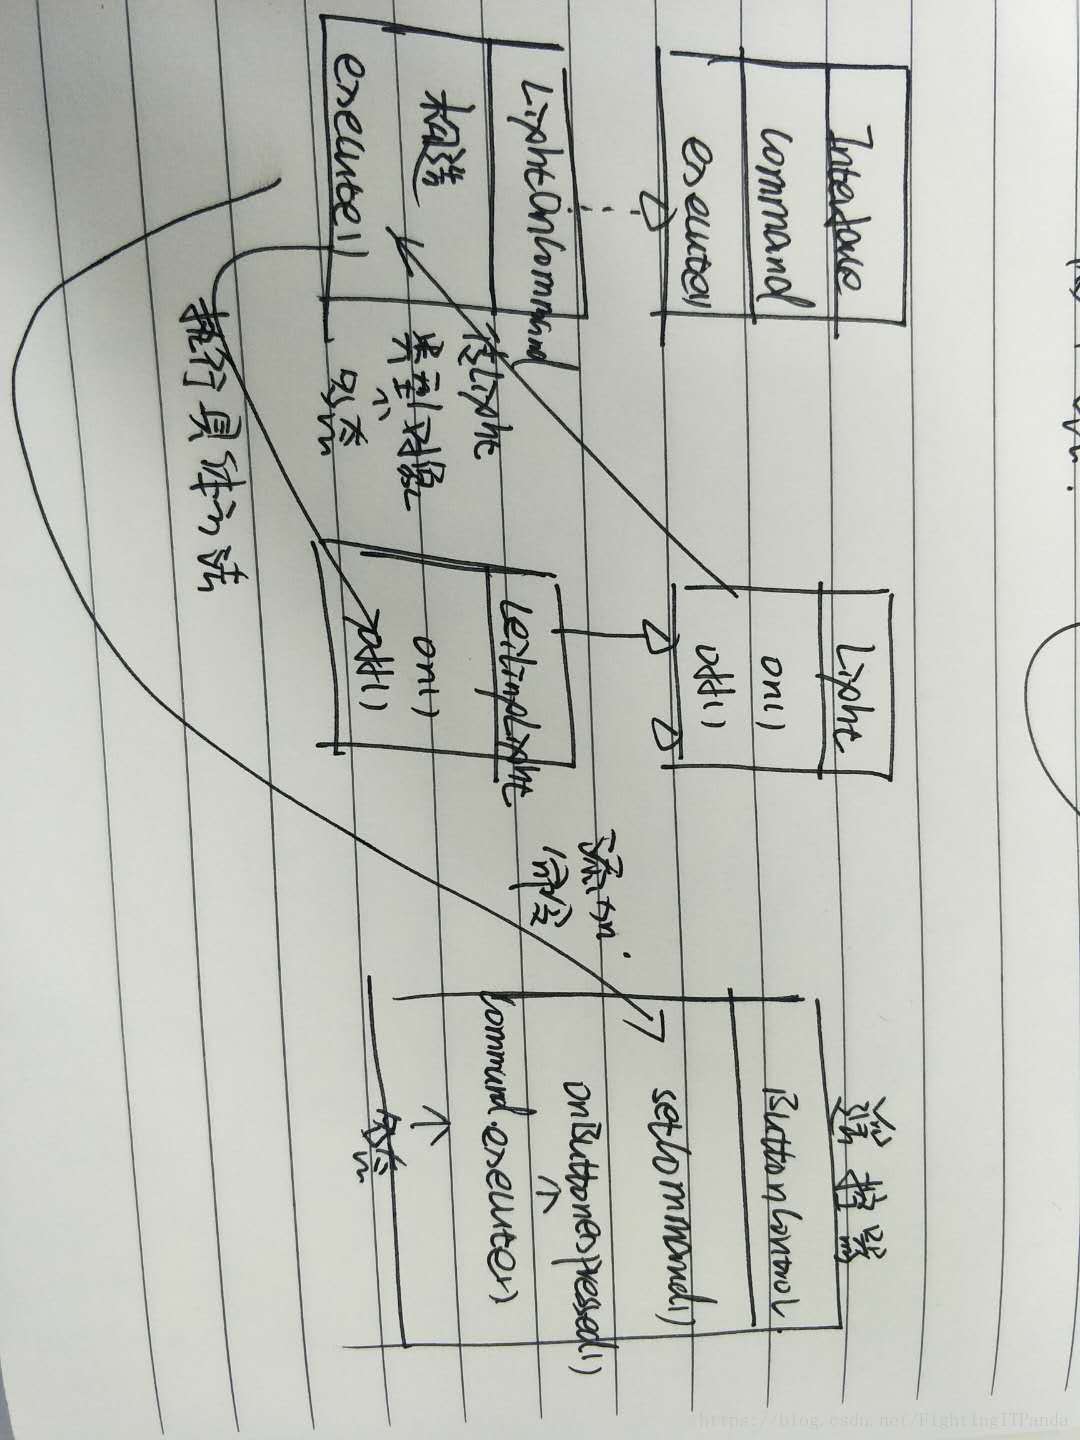 Interface
Command
execute()
LightOnCommand
构造
execute()
传Light
类型对象
↑
多态
执行具体方法
Light
on()
off()
CeilingLight
on()
off()
添加
命令
遥控器
ButtonControl
setCommand()
onButtonesPressed()
↑
Command.execute()
↑
多态
https://blog.csdn.net/FightingITPanda